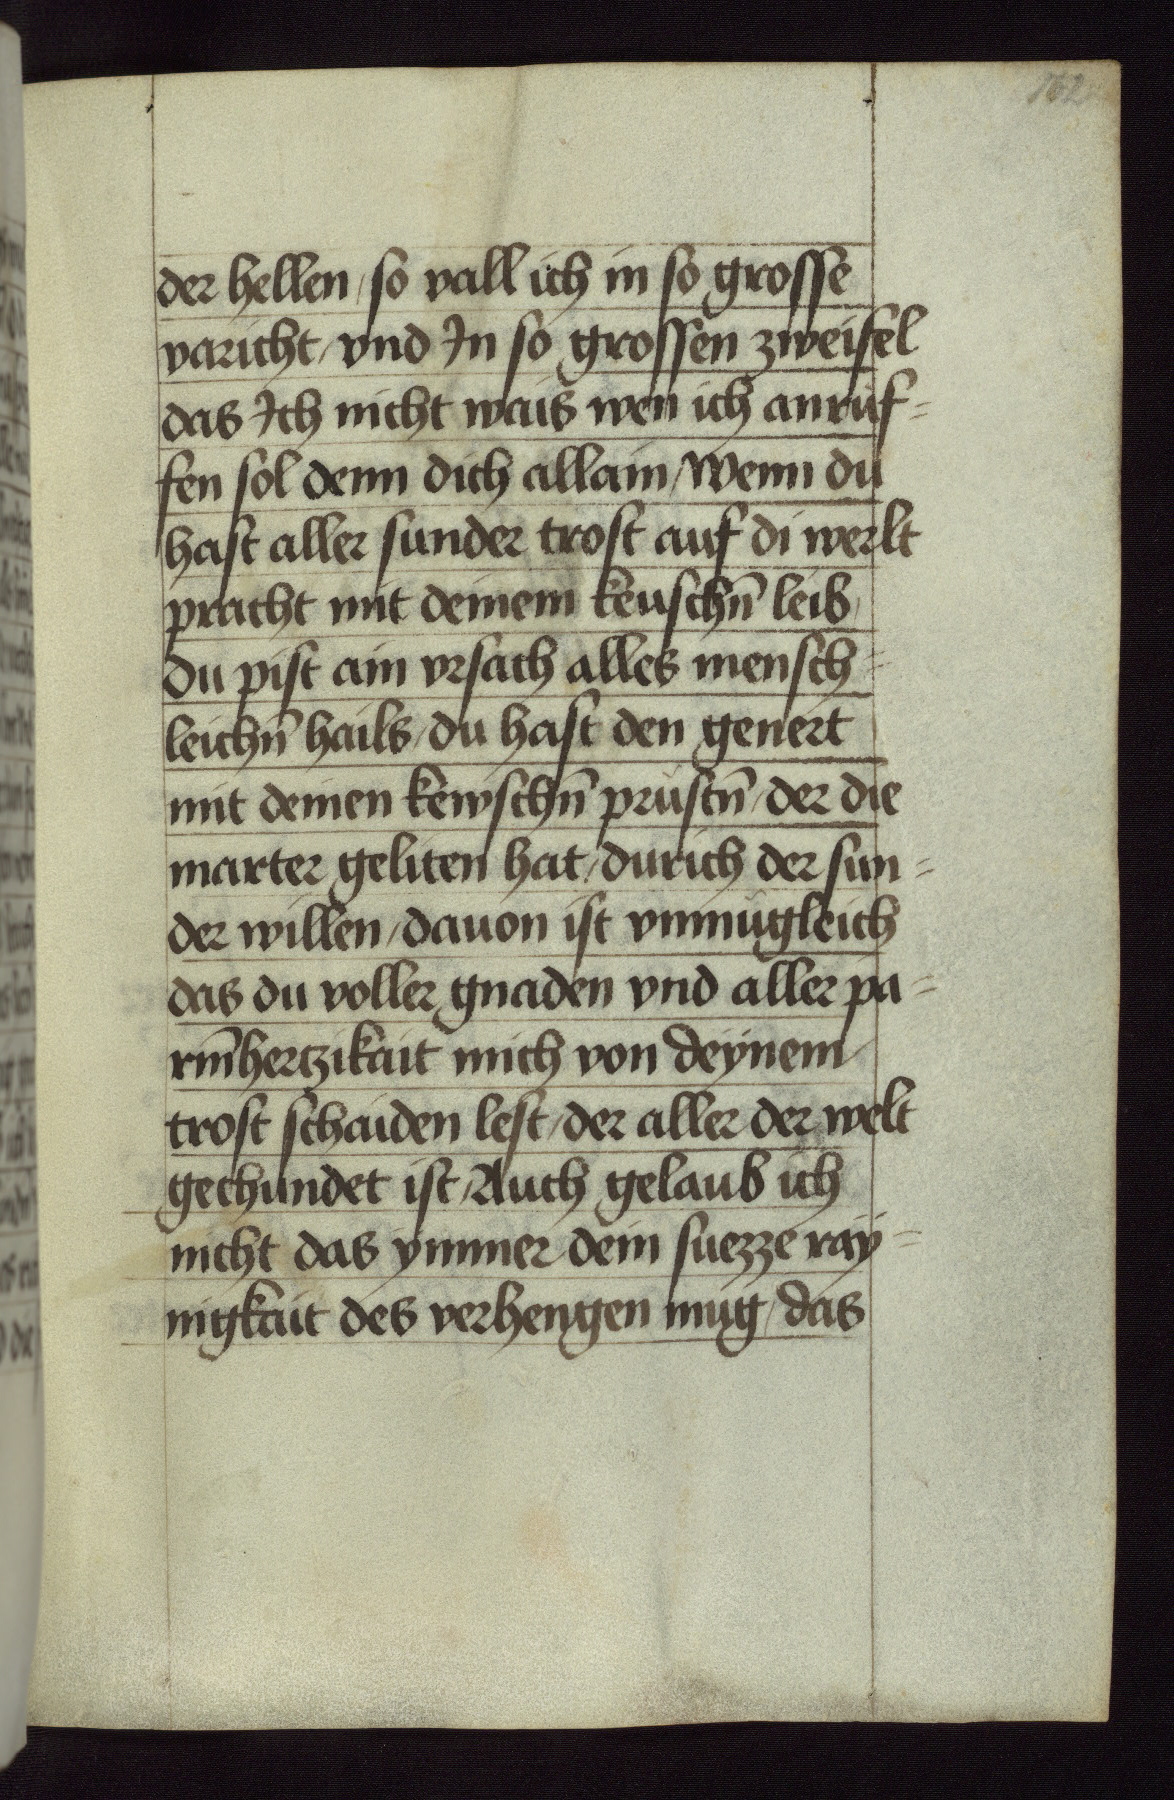 162
der hellen / so vall ich in so grosse
varicht / vnd In so grossen zweifel
das Ich nicht wais wen ich anruf=
fen sol denn dich allain / Wenn du
hast aller sunder trost auf di werlt
pracht mit deinem keuschn̄ leib /
du pist ain vrsach alles mensch=
leichn̄ hails / du hast den genert
mit deinen kewschn̄ prüstn̄ / der die
marter geliten hat / durich der sun=
der willen / dauon ist vnmügleich
das du voller gnaden vnd aller pa=
rm̄hertzikait mich von deÿnem
trost schaiden lest / der aller der welt
gechundet ist / Auch gelaub ich
nicht das ymmer dein suezze raÿ=
nigkait des verhengen mug / das